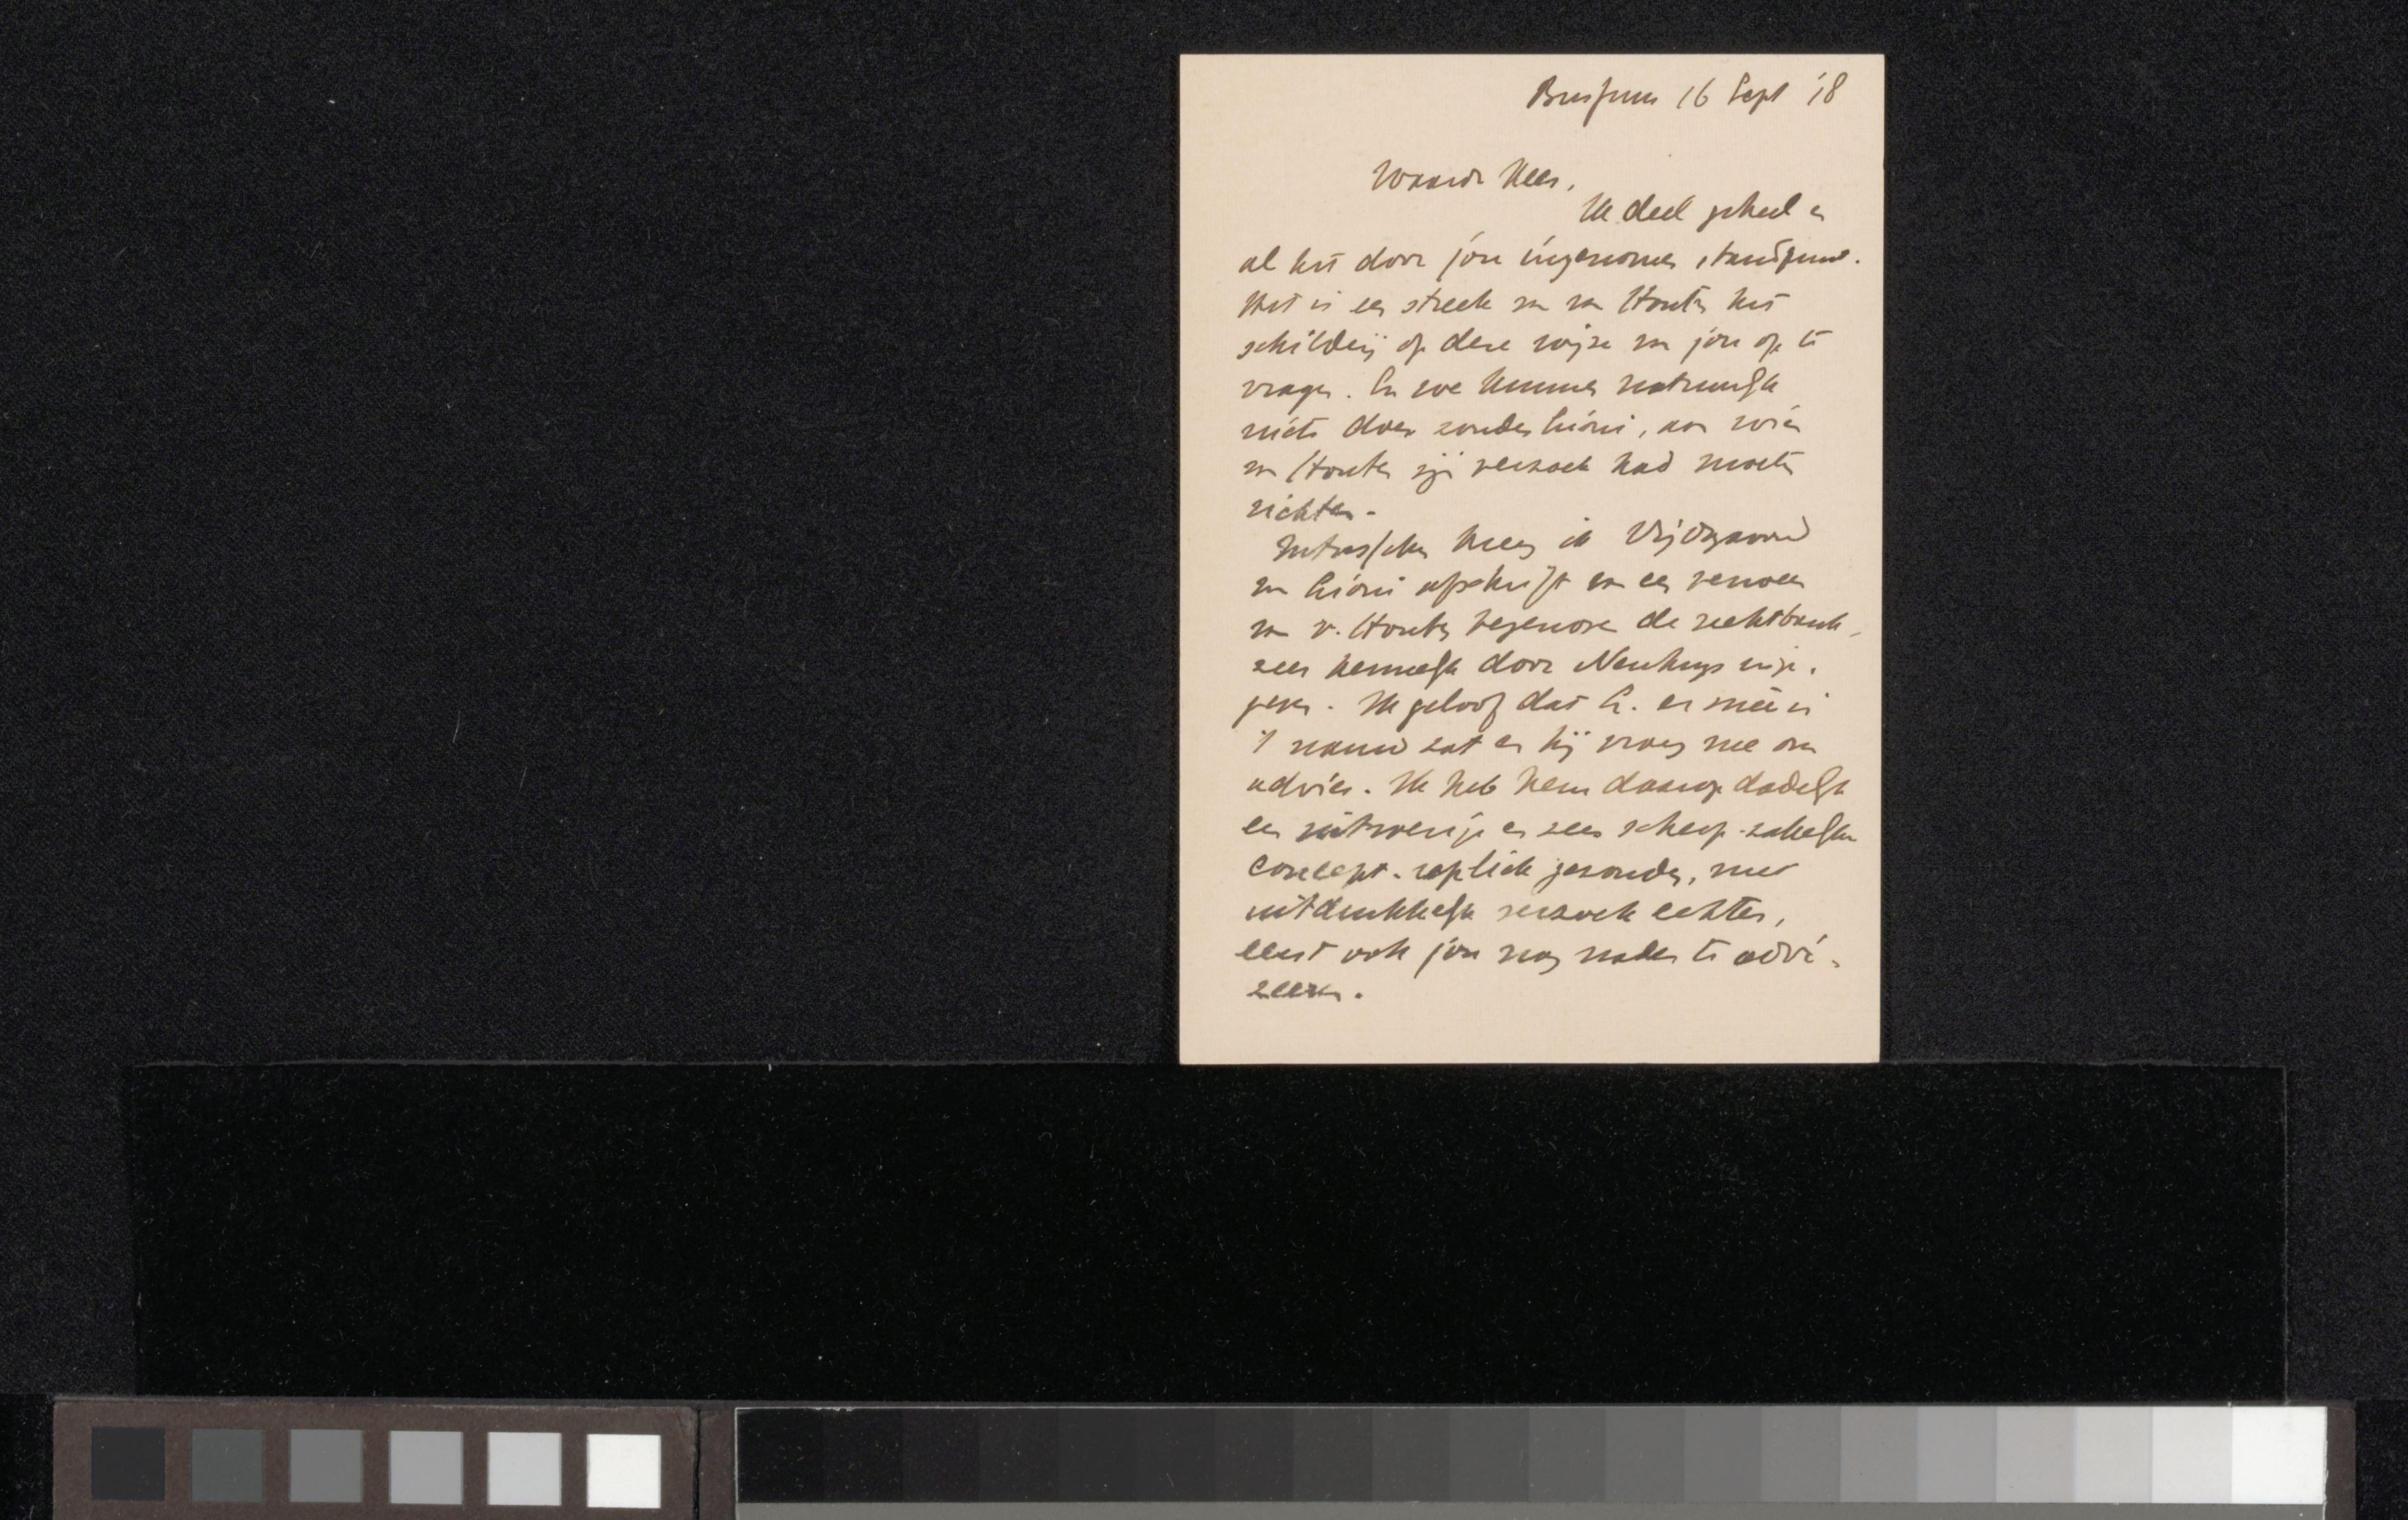 Bussum 16 Sept '18
Waarde Kees,
Ik deel geheel en
al het door jou ingenomen standpunt.
Het is een streek van van Houten het
schilderij op deze wijze van jou op te
vragen. En we kunnen natuurlijk
niets doen zonder, aan wien
van Houten zijn verzoek had moeten
richten.
Intusschen kreeg ik Vrijdagavond
van afschrift van een verweer
van v. Houten tegenover de rechtbank,
zeer kennelijk door Neuhuys inge-
geven. Ik geloof dat er mee in
't nauw zat en hij vroeg me om
advies. Ik heb hem daarop dadelijk
een uitvoerige en zeer scherp-zakelijke
concept-repliek gezonden, met
uitdrukkelijk verzoek echter,
eerst ook jou nog nader te advi-
seeren.